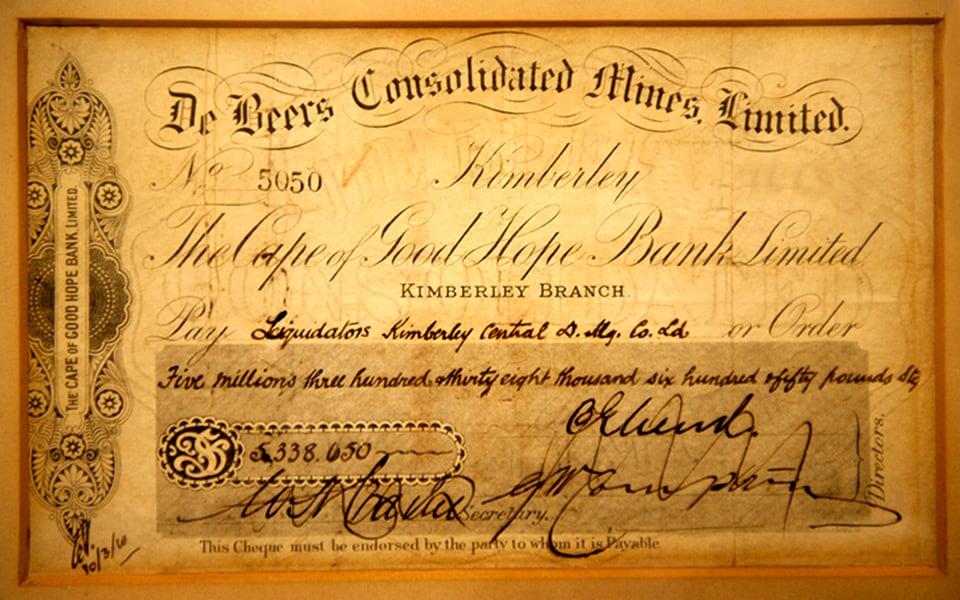 De Beers Consolidated Mines, Limited.
No 5050 Kimberley
The Cape of Good Hope Bank Limited
KIMBERLEY BRANCH.
Pay Liquidators Kimberley Central D. Mg. Co. Ld or Order
Five millions three hundred & thirty eight thousand six hundred & fifty pounds Stg
5,338.650
Secretary.
Directors.
This Cheque must be endorsed by the party to whom it is Payable.
THE CAPE OF GOOD HOPE BANK, LIMITED.